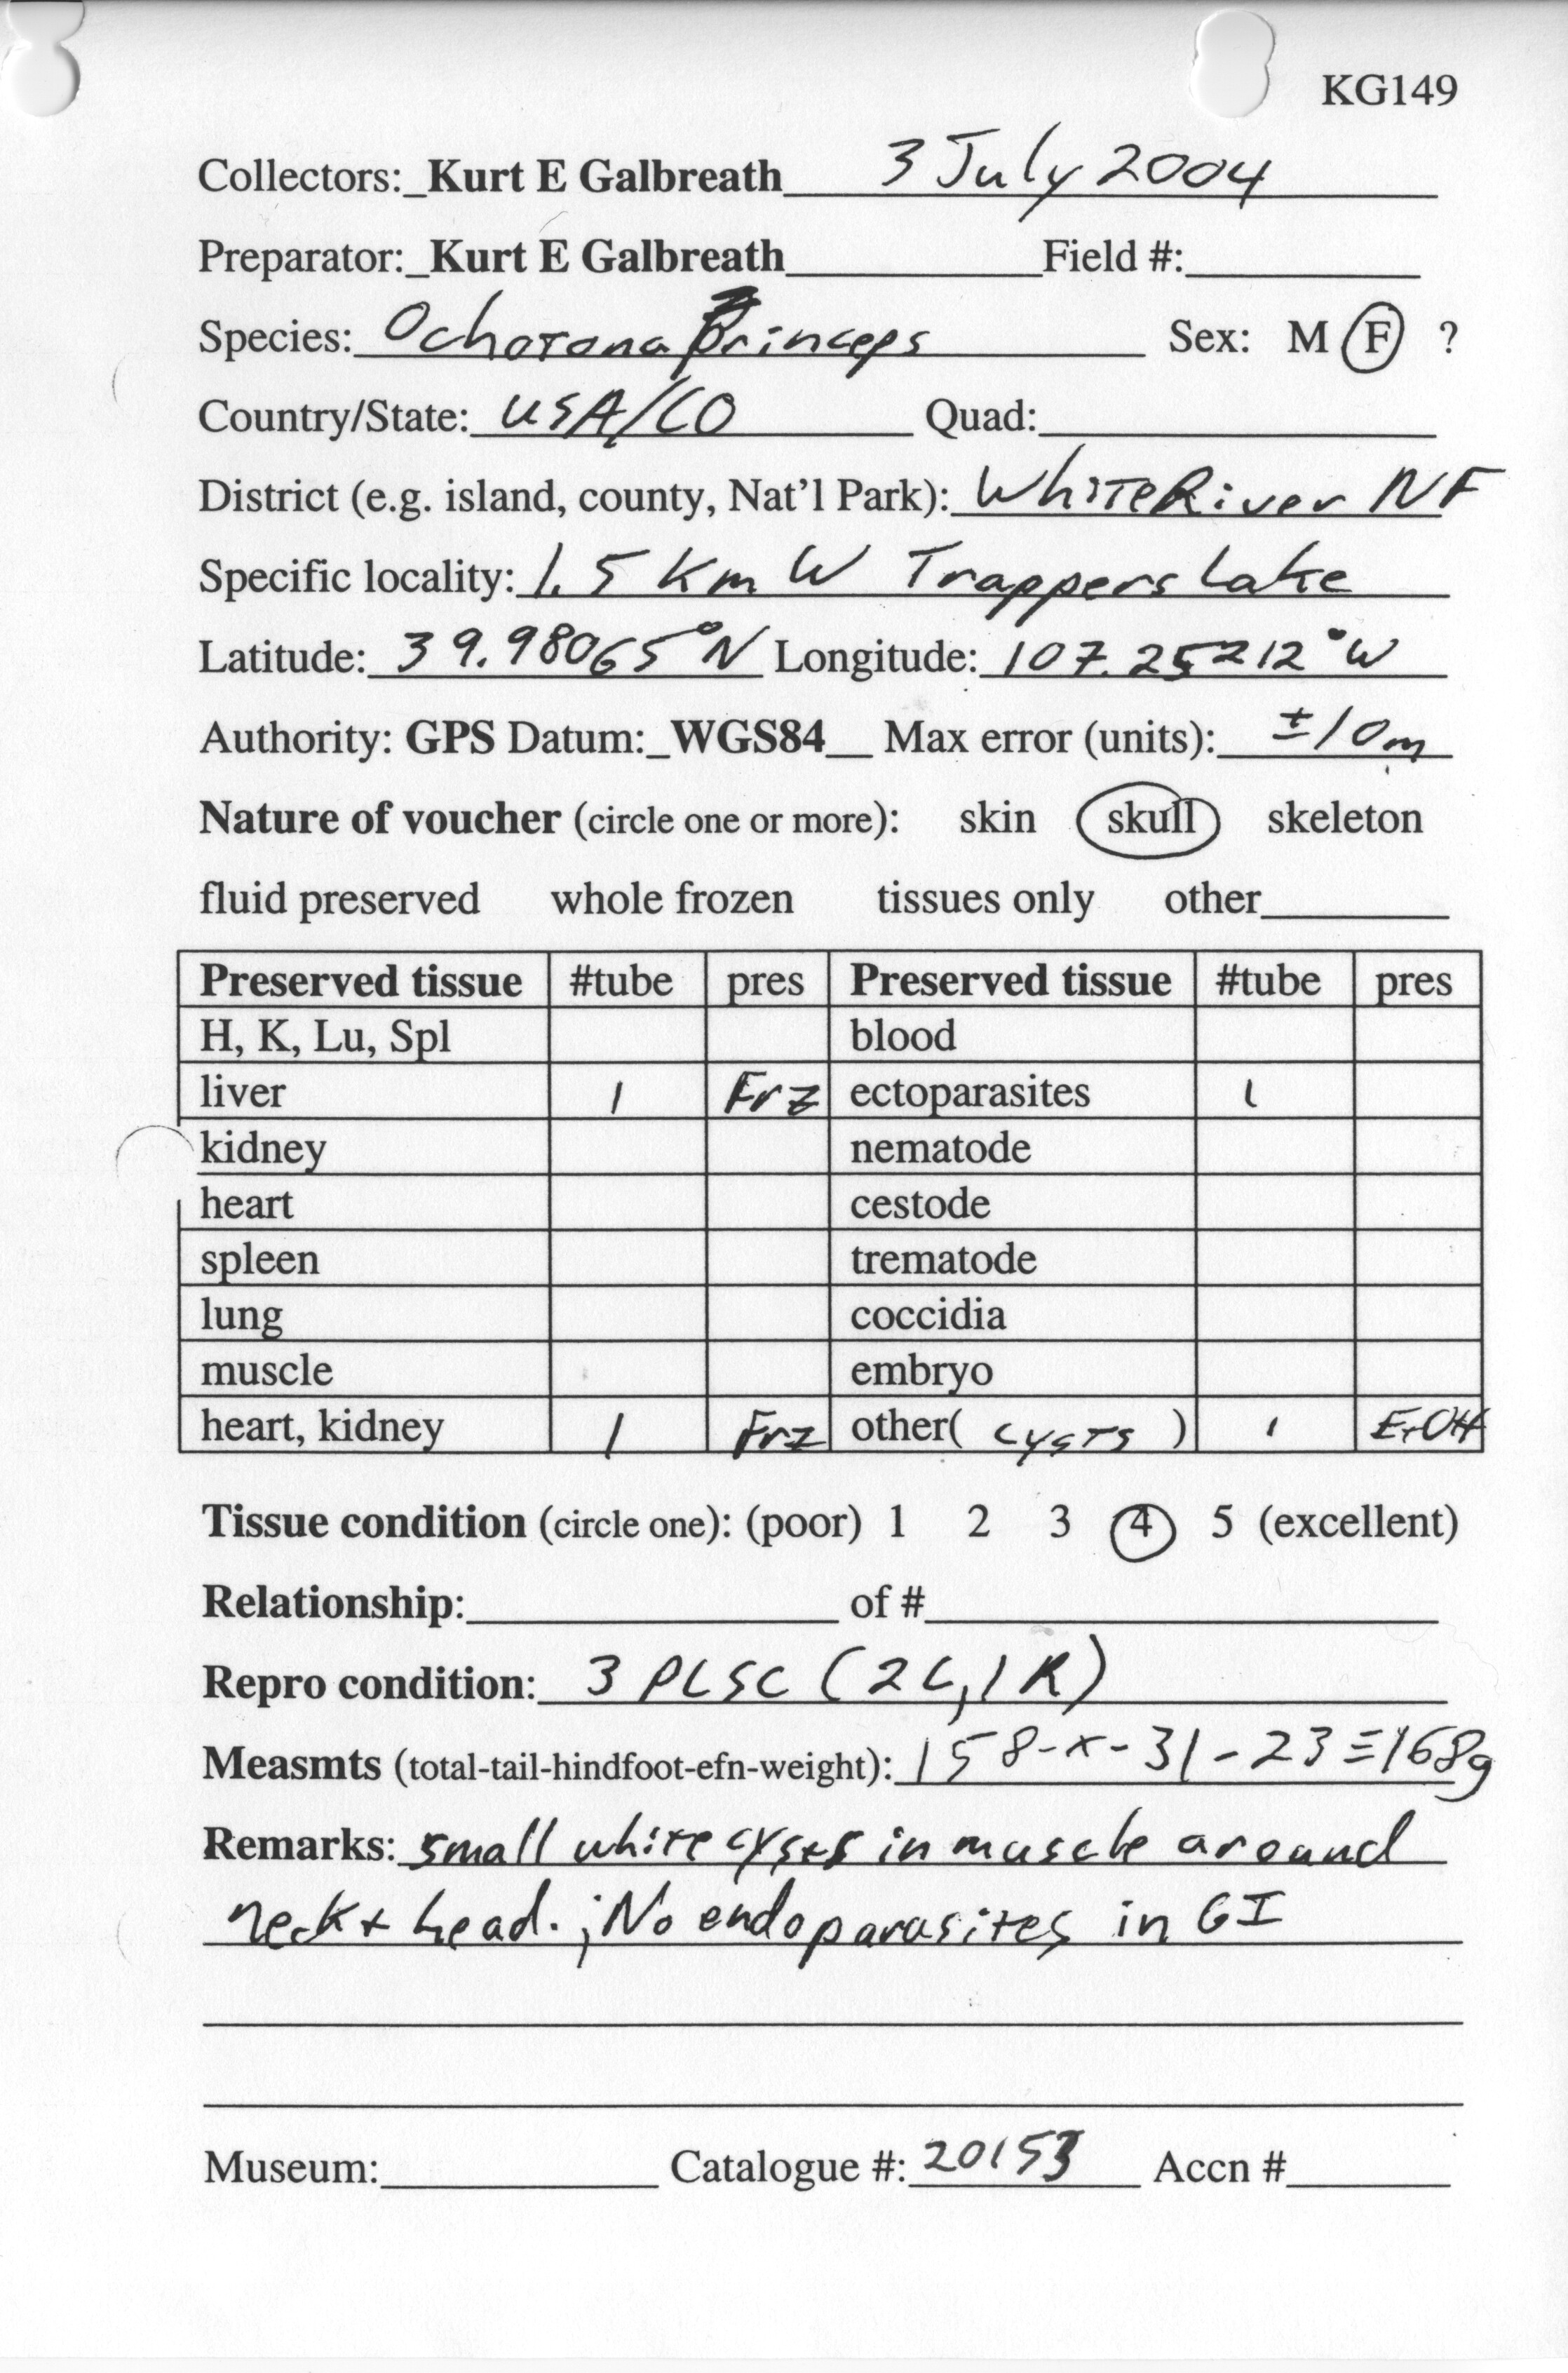 KG149
Collectors: Kurt E Galbreath 3 July 2004
Preparator: Kurt E Galbreath Field #:
Species: Ochotona princeps Sex: M F ?
Country/State: USA/CO Quad:
District (e.g. island, county, Nat'l Park): White River NF
Specific locality: 1.5 Km W Trappers Lake
Latitude: 39.98065°N Longitude: 107.25212°W
Authority: GPS Datum: WGS84 Max error (units): ±10m
Nature of voucher (circle one or more): skin skull skeleton
fluid preserved whole frozen tissues only other
Preserved tissue #tube pres Preserved tissue #tube pres
H, K, Lu, Spl blood
liver 1 Frz ectoparasites 1
kidney nematode
heart cestode
spleen trematode
lung coccidia
muscle embryo
heart, kidney 1 Frz other( cysts ) 1 EtOH
Tissue condition (circle one): (poor) 1 2 3 4 5 (excellent)
Relationship: of #
Repro condition: 3 PLSC (2L, 1R)
Measmts (total-tail-hindfoot-efn-weight): 158-x-31-23≡168g
Remarks: small white cysts in muscle around
neck + head. ; No endoparasites in GI
Museum: Catalogue #: 20153 Accn #